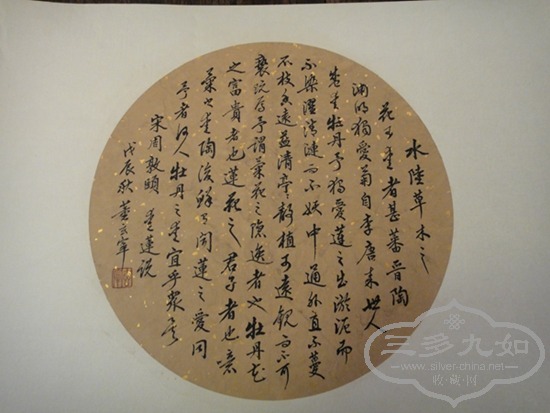 水陸草木之
花可愛者甚蕃晉陶
淵明獨愛菊自李唐来世人
甚愛牡丹予獨愛蓮之出淤泥而
不染濯清漣而不妖中通外直不蔓
不枝香遠益清亭亭静植可遠觀而不可
褻玩焉予謂菊花之隱逸者也牡丹花
之富貴者也蓮花之君子者也噫
菊之愛陶後鮮有聞蓮之愛同
予者何人牡丹之愛宜乎衆矣
宋周敦頤 愛蓮説
戊辰秋 董玄宰
三多九如
www.silver-china.net
收·藏·网